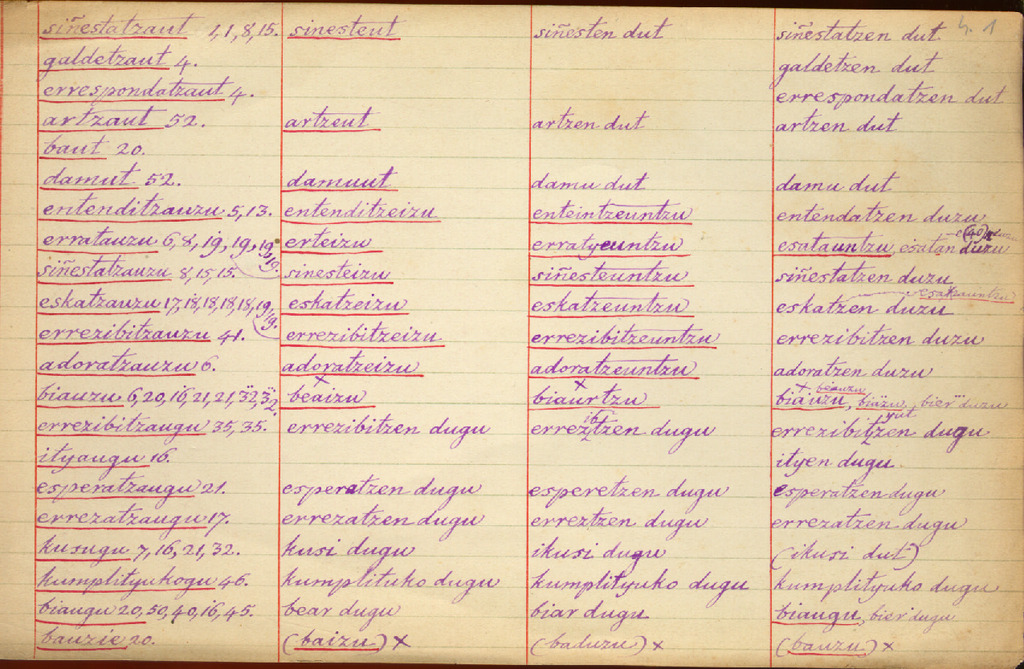 siñestatzaut 1,1,8,15. sinesteut siñesten dut siñestatzen dut 4.1
galdetzaut 4. galdetzen dut
errespondatzaut 4. errespondatzen dut
artzaut 52. artzeut artzen dut artzen dut
baut 20.
damut 52. damuut damu dut damu dut
entenditzauzu 5,13. entenditzeizu enteintzeuntzu entendatzen duzu
erratauzu 6,8,19,19,19,19. erteizu erratyeuntzu esatauntzu, esatan duzu (40)
siñestatzauzu 8,15,15. sinesteizu siñesteuntzu siñestatzen duzu
eskatzauzu 17,18,18,18,18,19,19. eskatzeizu eskatzeuntzu eskatzen duzu esatzauntzu
errezibitzauzu 41. errezibitzeizu errezibitzeuntzu errezibitzen duzu
adoratzauzu 6. adoratzeizu adoratzeuntzu adoratzen duzu
biauzu 6,20,16,21,21,32,32, beaizu x biaurtzu x biauzu, x beauzu biäzu, bier duzu
errezibitzaugu 35,35. errezibitzen dugu errezibitzen dugu errezibitzen dugu
ityaugu 16. ityen dugu.
esperatzaugu 21. esperatzen dugu esperetzen dugu esperatzen dugu
errezatzaugu 17. errezatzen dugu erreztzen dugu errezatzen dugu
kusugu 7,16,21,32. kusi dugu ikusi dugu (ikusi dut)
kumplityukogu 46. kumplituko dugu kumplityuko dugu kumplityuko dugu
biaugu 20,50,40,16,45. bear dugu biar dugu biaugu, bier dugu
bauzie 20. (baizu) x (baduzu) x (bauzu) x